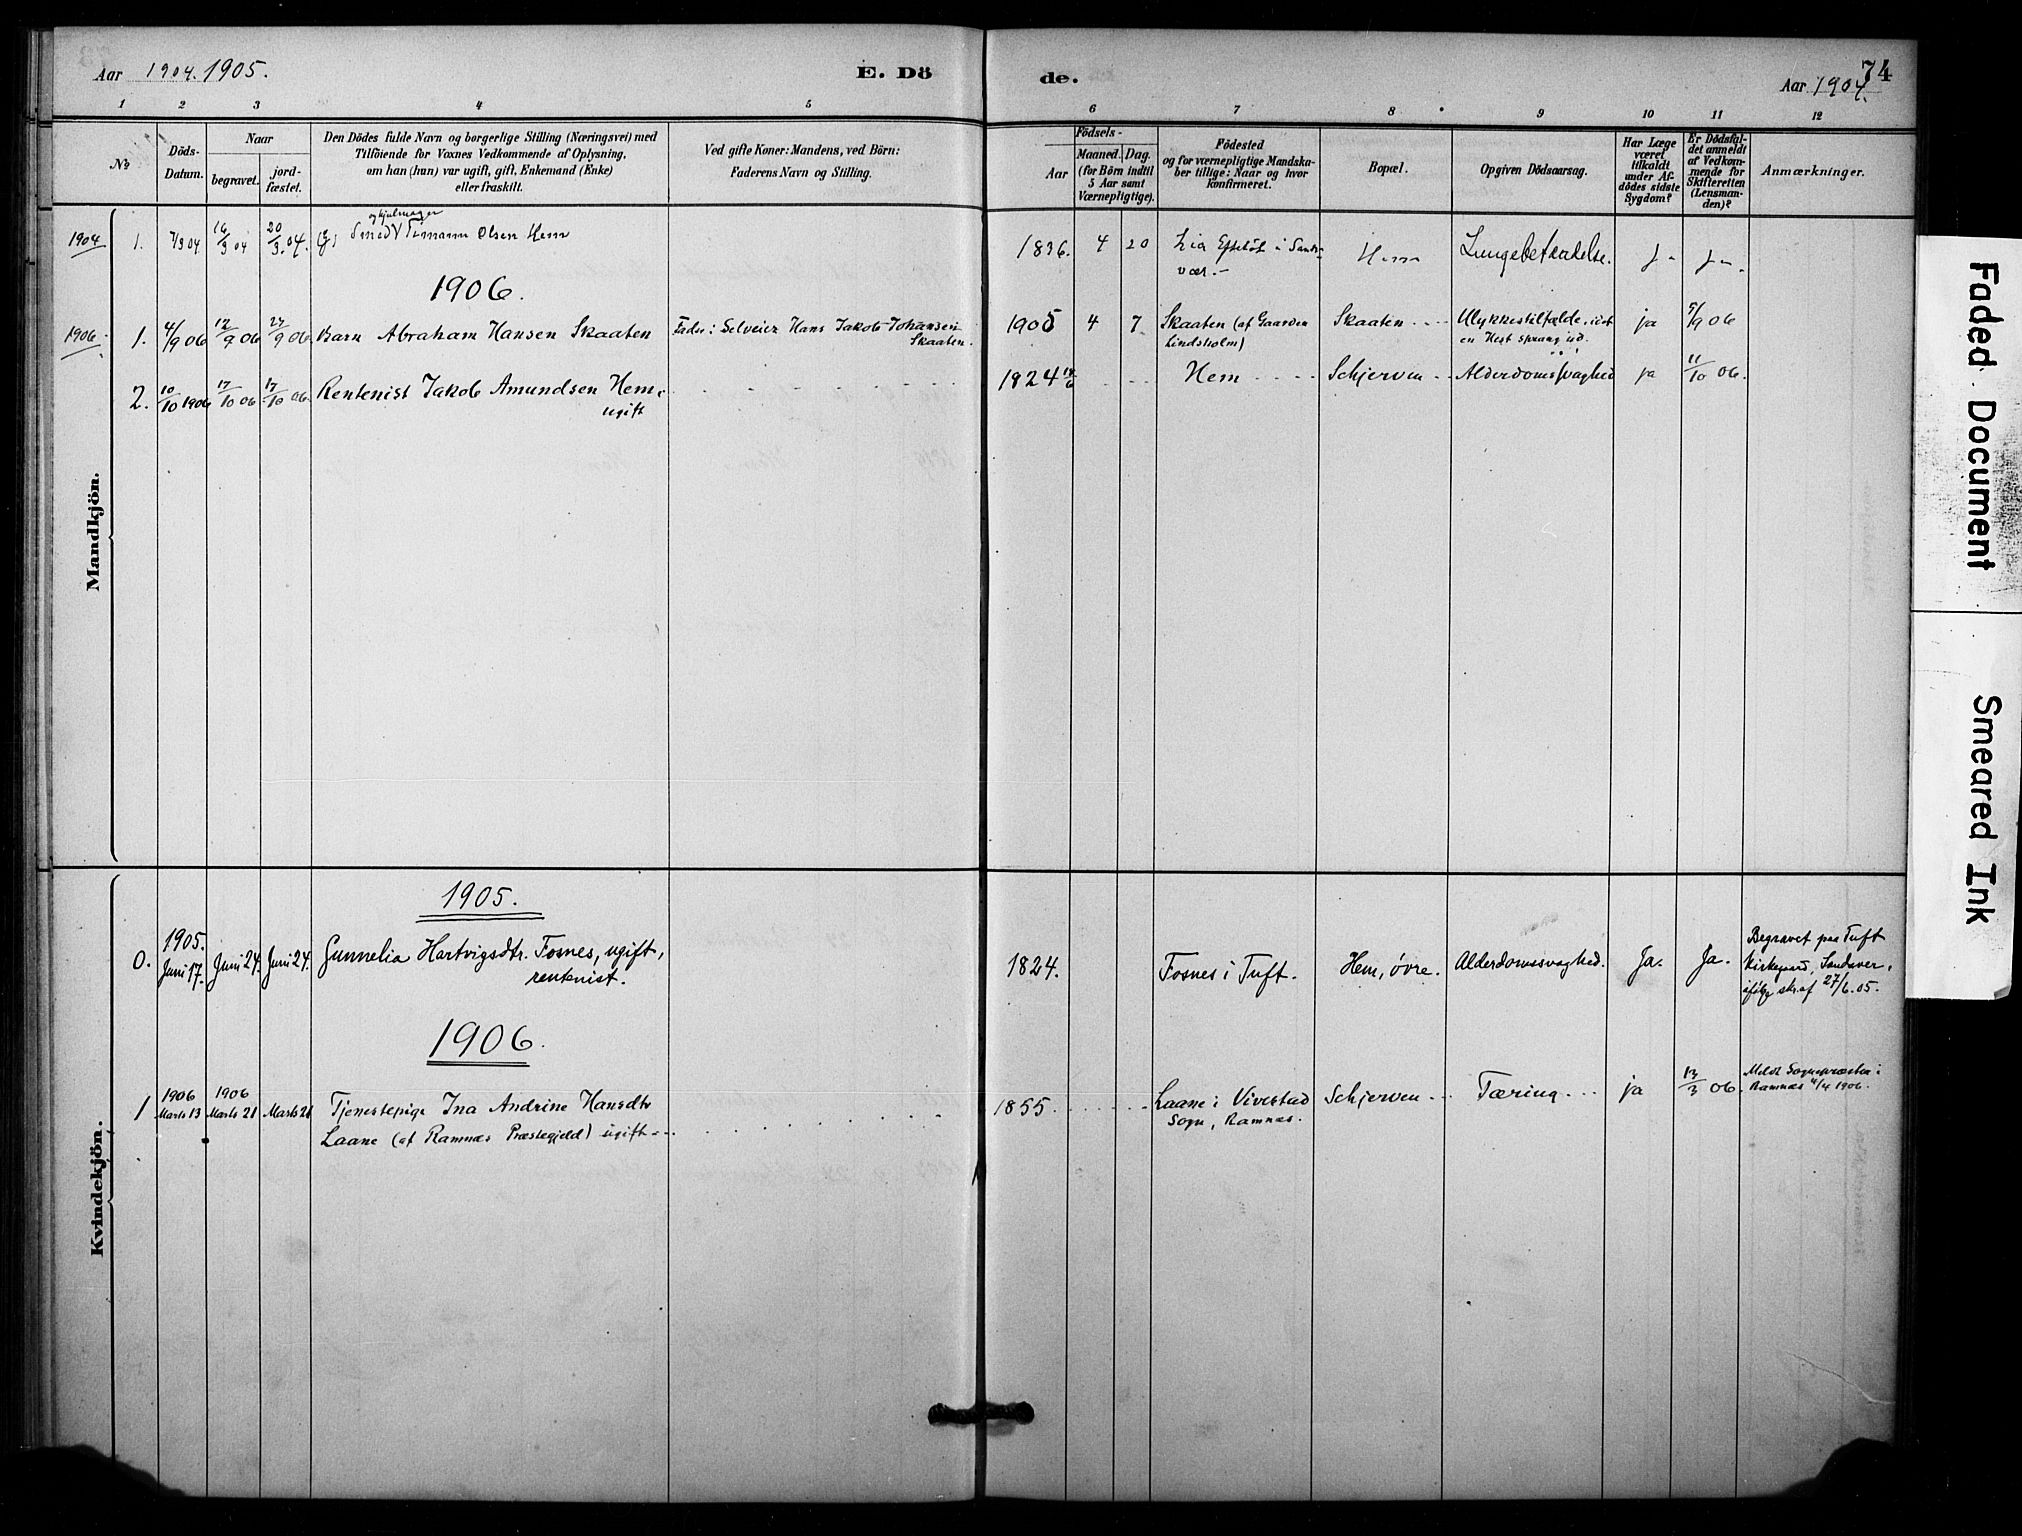 Aar 1904. 1905.
E. Dö
de.
Aar 1904.
74
1 2 3 4 5 6 7 8 9 10 11 12
No
Döds-
Datum.
Naar
begravet.
jord-
fæstet.
Den Dödes fulde Navn og borgerlige Stilling (Næringsvei) med
Tilföiende for Voxnes Vedkommende af Oplysning,
om han (hun) var ugift, gift, Enkemand (Enke)
eller fraskilt.
Ved gifte Koner: Mandens, ved Börn:
Faderens Navn og Stilling.
Födsels-
Aar
Maaned. Dag.
(for Börn indtil
5 Aar samt
Værnepligtige).
Födested
og for værnepligtige Mandska-
ber tillige: Naar og hvor
konfirmeret.
Bopæl.
Opgiven Dödsaarsag.
Har Læge
været
tilkaldt
under Af-
dödes sidste
Sygdom?
Er Dödsfal-
det anmeldt
af Vedkom-
mende for
Skifteretten
(Lensman-
den)?
Anmærkninger.
Mandkjön.
1904 1. 7/3 04 16/3 04 20/3.04. (g) Smed V Timann Olsen Hem
og hjulmager
1836. 4 20 Lia Efteløt i Sands-
vær.- Hem Lungebetændelse. J- J-
1906.
1906. 1. 4/9 06 12/9 06 23/9 06 Barn Abraham Hansen Skaaten Fader: Selveier Hans Jakob Johansen
Skaaten.
1905 4 7 Skaaten (af Gaarden Skaaten Ulykkestilfælde, idet ja 5/9 06
Lindsholm) en Hest sprang ud.
2. 10/10 1906 17/10 06 17/10 06 Rentenist Jakob Amundsen Hem,
ugift
1824 Hem Schjerven Alderdomssvaghed ja 11/10 06.
Kvindekjön.
1905.
0. 1905. Juni 17. Juni 24. Juni 24. Gunnelia Hartvigsdtr. Fosnes, ugift,
rentenist.
1824. Fosnes i Tuft. Hem, övre. Alderdomssvaghed. Ja. Ja.
Begravet paa Tuft
Kirkegaard, Sandsver,
ifölge skr. af 27/6.05.
1906.
1 1906 Marts 13 1906 Marts 21 Marts 21 Tjenestepige Ina Andrine Hansdtr
Laane (af Ramnæs Præstegjeld) ugift
1855. Laane i Vivestad Schjerven Tæring ja 13/3 06.
Sogn, Ramnæs.
Meldt Sognepræsten i
Ramnæs 4/4 1906.
Faded Document
Smeared Ink